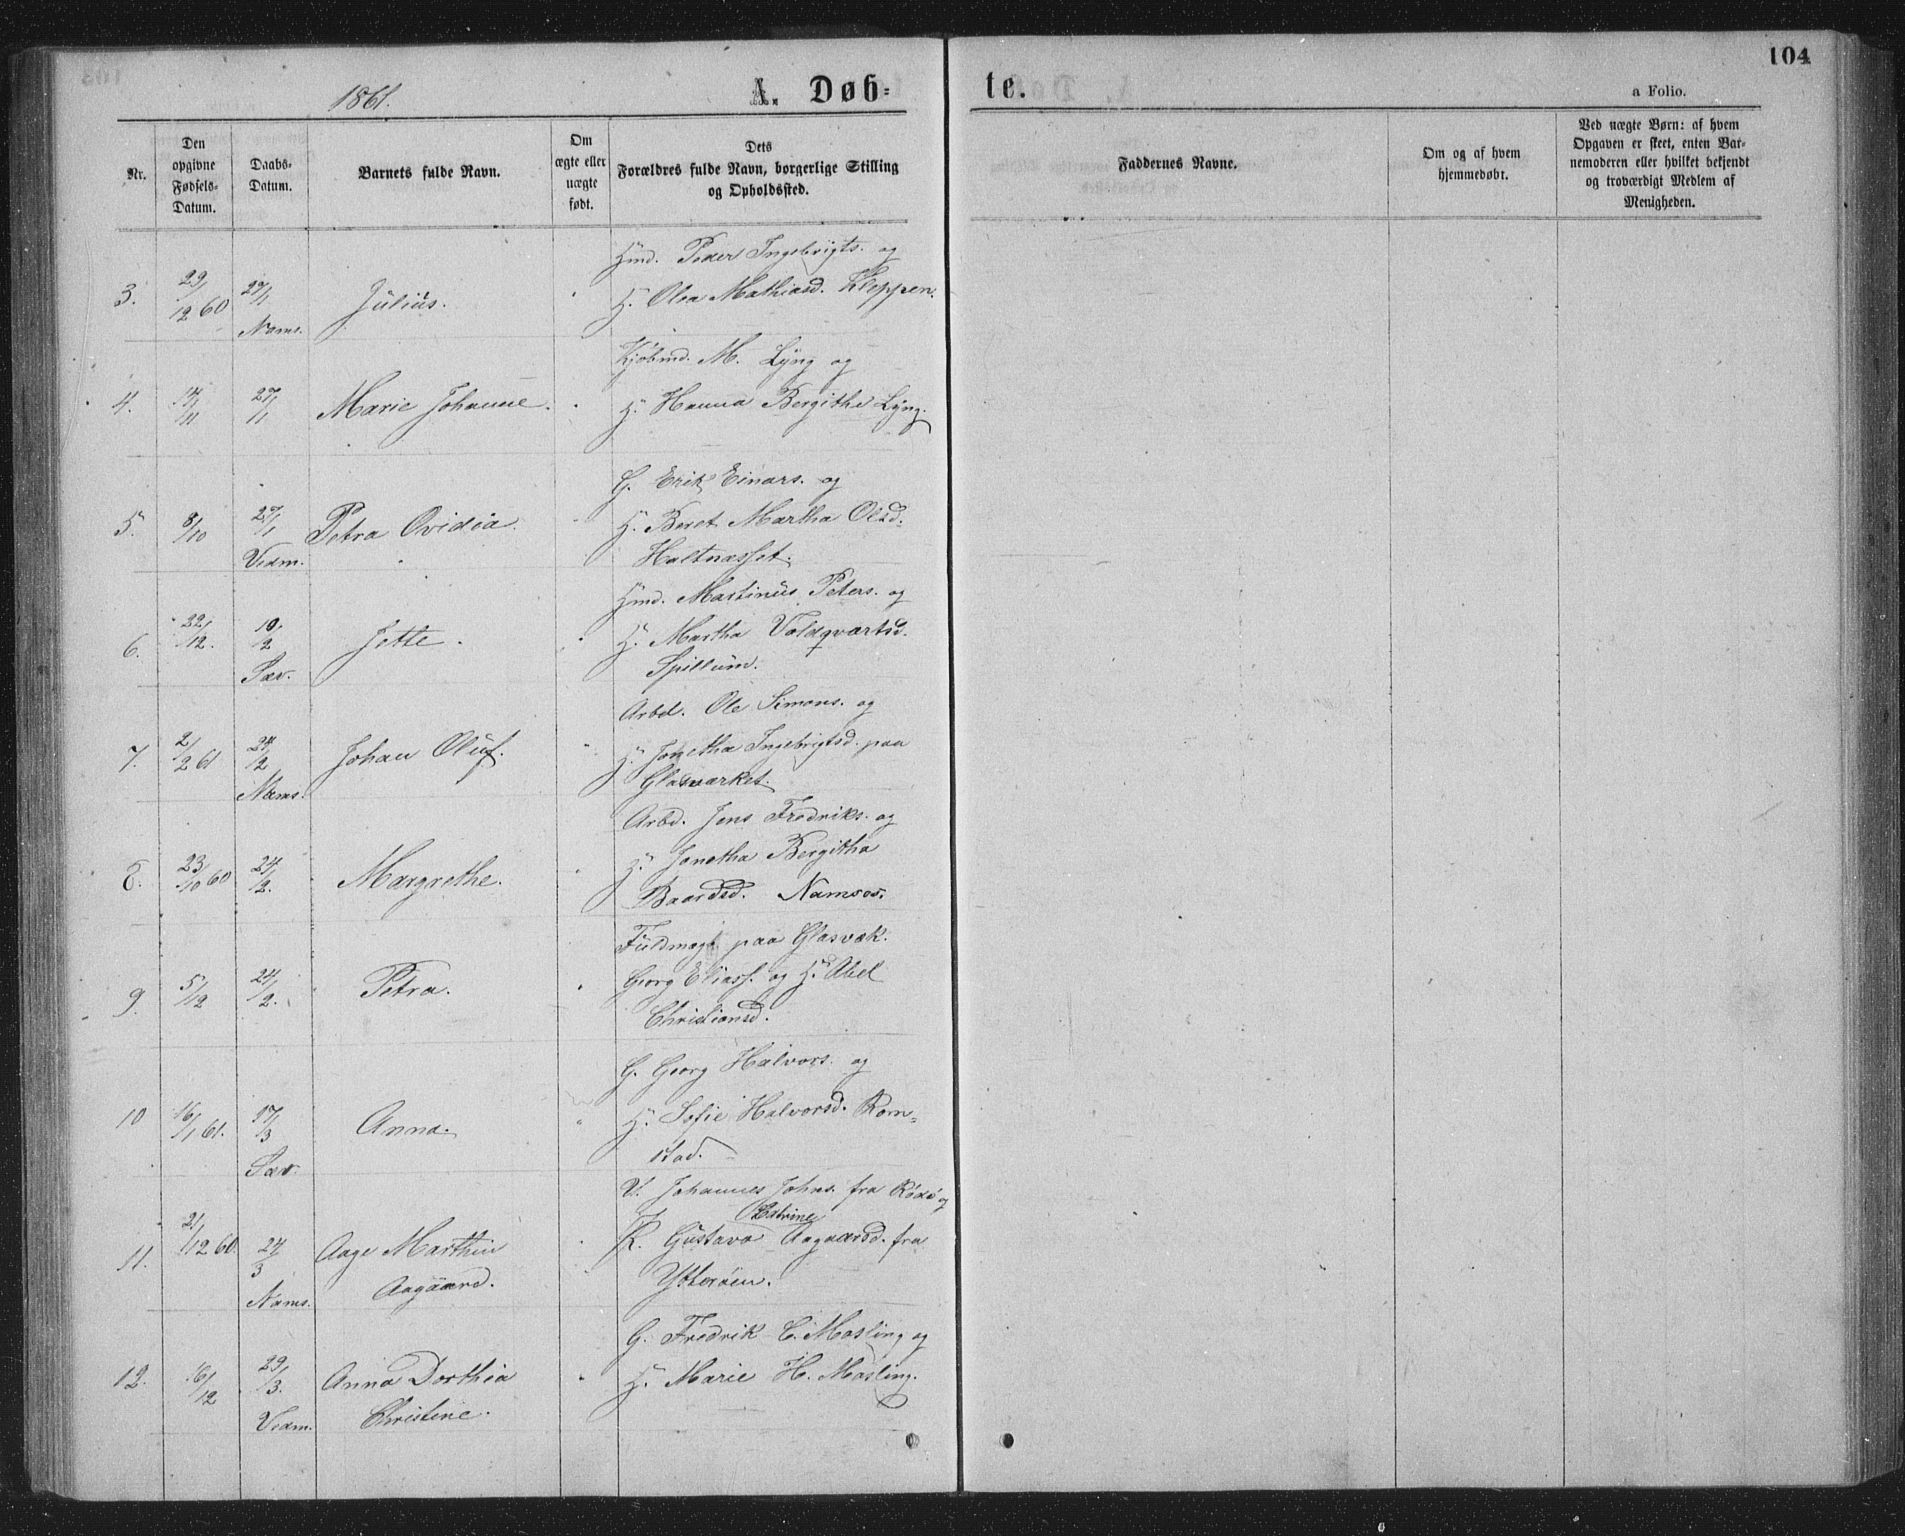 104
1861.
A. Døb-
te.
a Folio.
Nr.
Den opgivne Fødsels-Datum.
Daabs-Datum.
Barnets fulde Navn.
Om ægte eller uægte født.
Dets Forældres fulde Navn, borgerlige Stilling og Opholdssted.
Faddernes Navne.
Om og af hvem hjemmedøbt.
Ved uægte Børn: af hvem Opgaven er skeet, enten Barnemoderen eller hvilket bekjendt og troværdigt Medlem af Menigheden.
Hmd. Peder Ingebrigts. og
3. 29/12 60 27/1 Julius. H. Olea Mathiasd. Kleppen.
Nams.
Kjøbmd. M. Lyng og
4. 14/11 27/1 Marie Johanne. H. Hanna Bergithe Lyng.
G. Erik Einars. og
5. 8/10 27/1 Petra Ovidia. H. Beret Martha Olsd.
Vedm. Haltnæsset.
Hmd. Mastinus Peters. og
6. 22/12. 10/2 Jette. H. Martha Voldqvartsd.
Sæv. Spillum.
Arbd. Ole Simons. og
7. 2/2 61 24/2 Johan Oluf. H. Jonetha Ingebrigtsd. paa
Nams. Glasværket.
Arbd. Jens Fredriks. og
8. 23/10 60 24/2. Margrethe. H. Jonetha Bergitha
Baardsd. Namsos.
Fuldmægt. paa Glasvæk.
9. 5/12 24/2. Petra. Georg Eliass. og H. Abel
Christiansd.
G. Georg Halvors. og
10 16/1 61. 17/3 Anna. H. Sofie Halvorsd. Rom-
Sæv. stad.
U. Johannes Johns. fra Rødø og
Catrine
11. 21/12 60. 24/3 Aage Marthin P. Gustava Aagaardsd. fra
Nams. Aagaard. Ytterøen.
G. Fredrik C. Mosling og
12. 16/12 29/3. Anna Dorthea H. Marie H. Mosling.
Vedm. Christine.